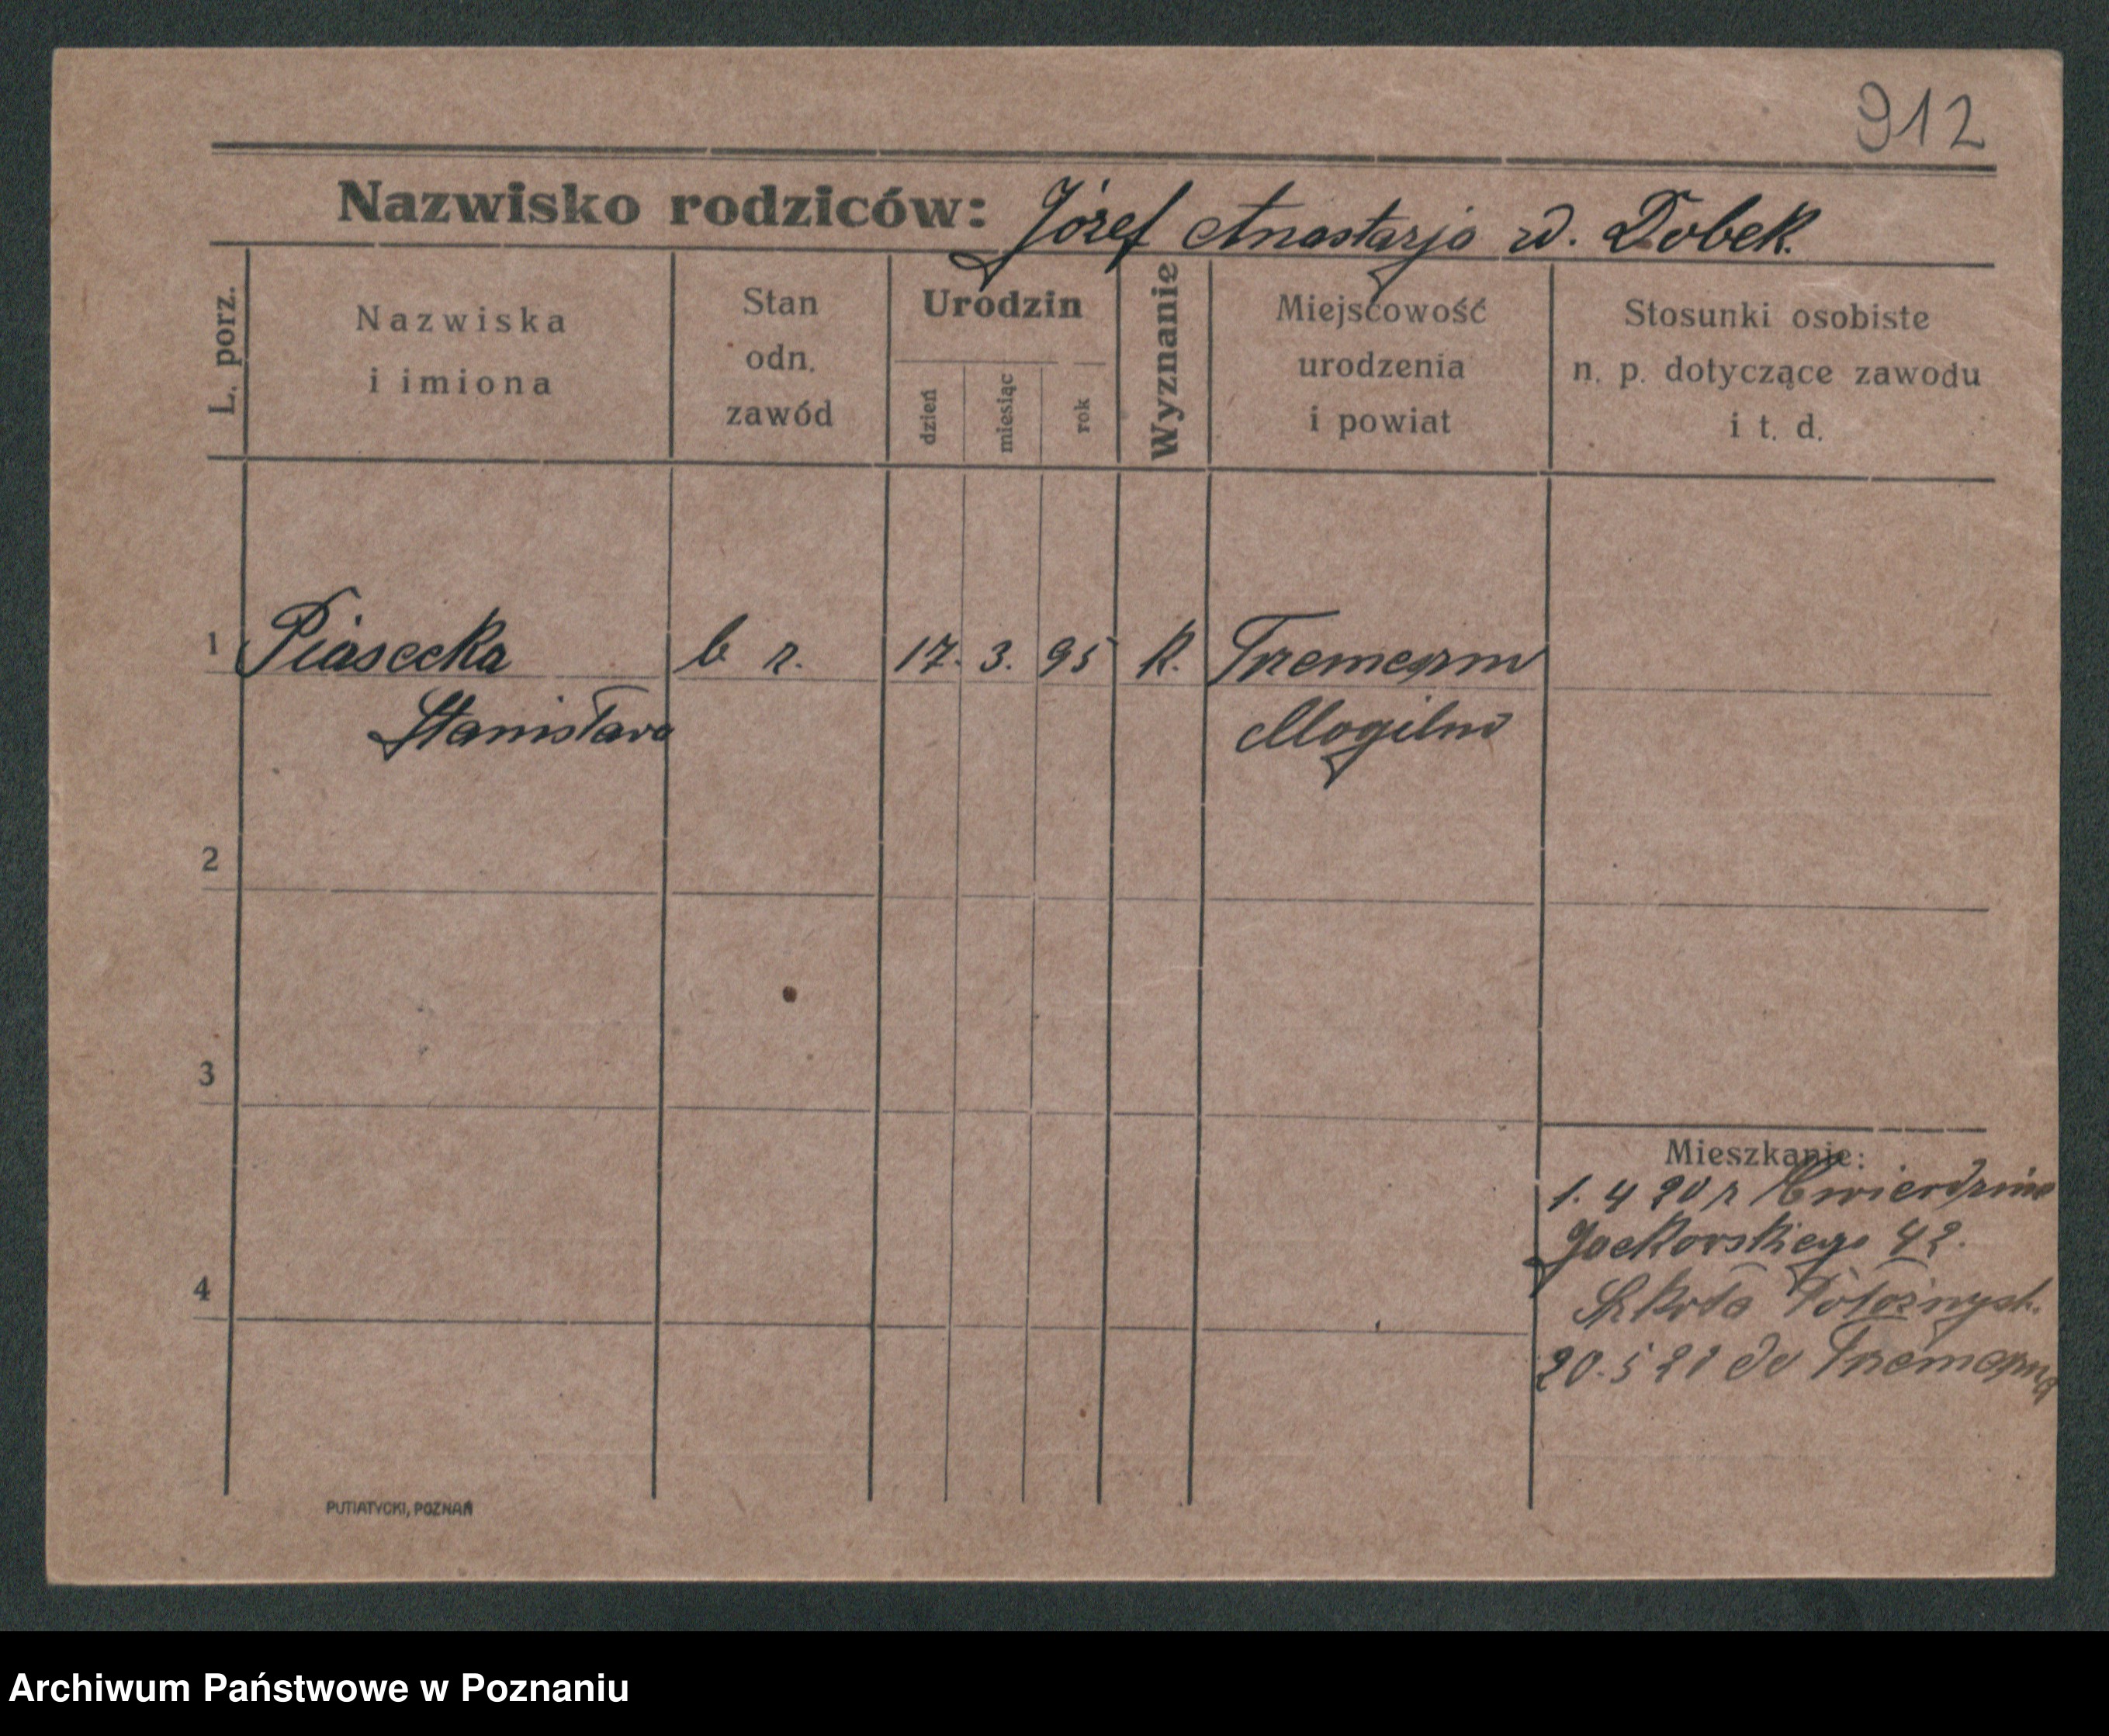 912
Nazwisko rodziców: Józef Anastazja d. Dobek.
L. porz.
Nazwiska
i imiona
Stan
odn.
zawód
Urodzin
dzień
miesiąc
rok
Wyznanie
Miejscowość
urodzenia
i powiat
Stosunki osobiste
n. p. dotyczące zawodu
i t. d.
1 Piasecka b r. 17. 3. 95 k. Tremeszno
Stanisława Mogilno
2
3
Mieszkanie:
1. 4 20 r
Jackowskiego 42.
4
Szkoła Położnych.
20. 5 21 do Tremeszna
PUTIATYCKI, POZNAŃ
Archiwum Państwowe w Poznaniu